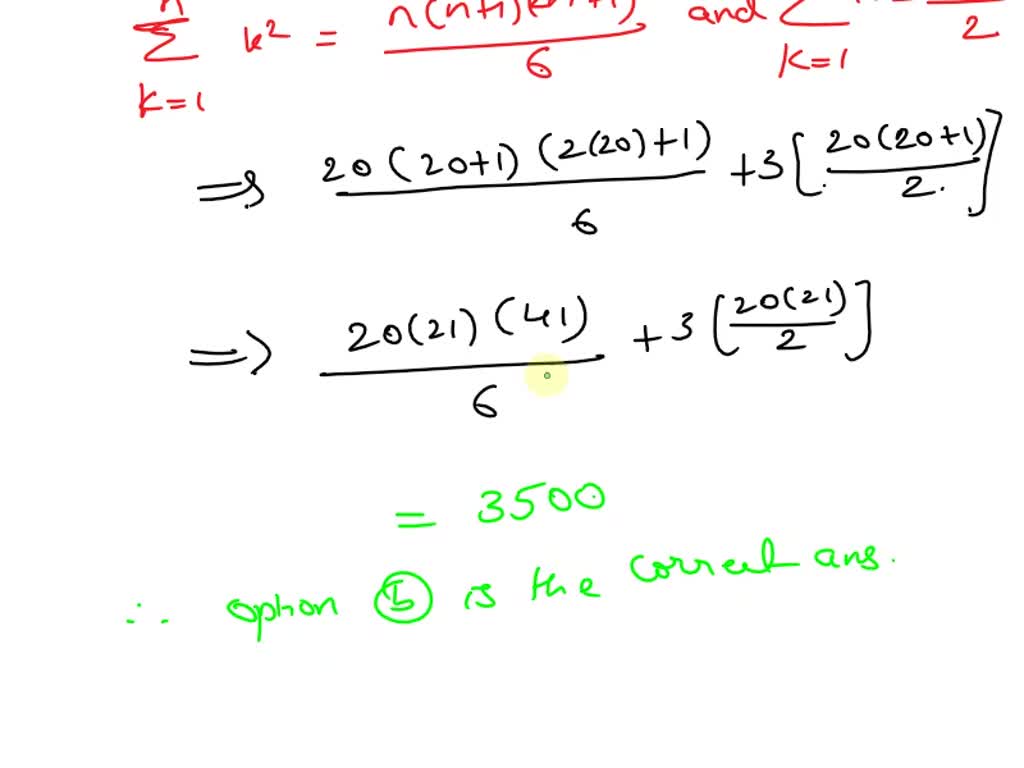 n
Σ k² = n(n+1)(2n+1)/6 and Σ /2
k=1 K=1
⇒ 20(20+1)(2(20)+1)/6 + 3[20(20+1)/2]
⇒ 20(21)(41)/6 + 3[20(21)/2]
= 3500
∴ option ⑤ is the correct ans.